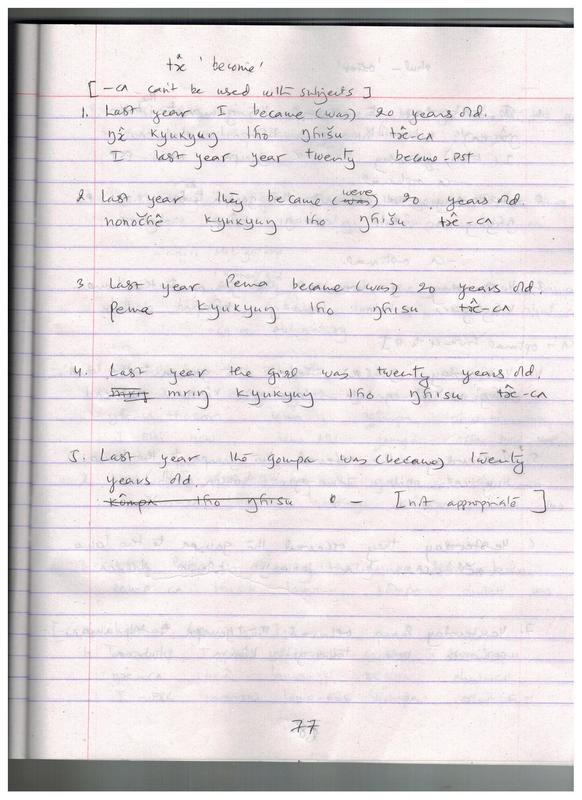 tə̂ 'become'
[ -cʌ can't be used with subjects ]
1. Last year I became (was) 20 years old.
ŋə̂ kyukyuŋ lho ŋhišu tə̂-cʌ
I last year year twenty become-PST
2 Last year they became (were) 20 years old.
nonočhê kyukyuŋ lho ŋhišu tə̂-cʌ
3. Last year Pema became (was) 20 years old.
pema kyukyuŋ lho ŋhisu tə̂-cʌ
4. Last year the girl was twenty years old.
mriŋ kyukyuŋ lho ŋhisu tə̂-cʌ
5. Last year the gompa was (became) twenty
years old.
kômpa lho ŋhisu — [not appropriate]
77